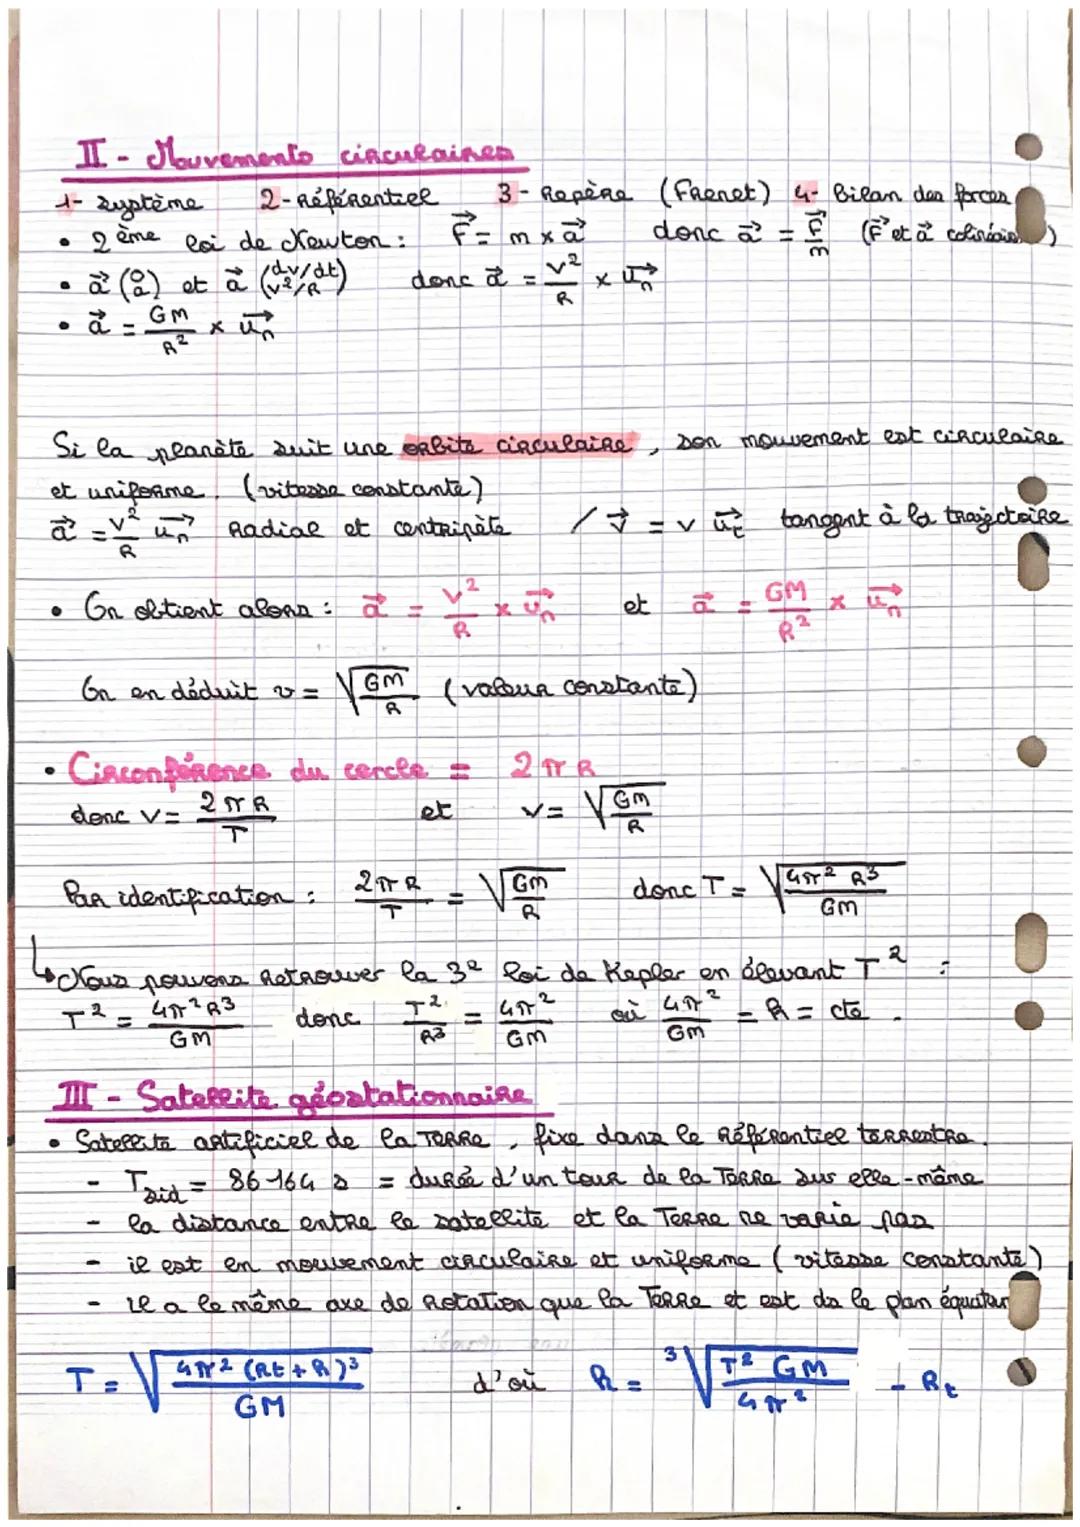 II - Mouvements circulaires
1- système 2- Référentiel 3- Repère (Frenet) 4- Bilan des forces
• 2ème loi de Newton : F⃗ = m × a⃗ donc a⃗ = F⃗/m (F⃗ et a⃗ colinéaires)
• a⃗ (0 a) et a⃗ (dv/dt v²/R) donc a⃗ = v²/R × u⃗n
• a⃗ = GM/R² × u⃗n
Si la planète suit une orbite circulaire, son mouvement est circulaire
et uniforme. (vitesse constante)
a⃗ = v²/R u⃗n Radial et centripète / v⃗ = v u⃗t tangent à la trajectoire
• On obtient alors : a⃗ = v²/R × u⃗n et a⃗ = GM/R² × u⃗n
On en déduit v = √(GM/R) (valeur constante)
• Circonférence du cercle = 2πR
donc v = 2πR/T et v = √(GM/R)
Par identification : 2πR/T = √(GM/R) donc T = √(4π² R³/GM)
↳ Nous pouvons retrouver la 3e loi de Kepler en élevant T² :
T² = 4π²R³/GM donc T²/R³ = 4π²/GM où 4π²/GM = k = cte.
III - Satellite géostationnaire
• Satellite artificiel de la Terre, fixe dans le référentiel terrestre.
- Tsid = 86 164 s = durée d'un tour de la Terre sur elle-même
- la distance entre le satellite et la Terre ne varie pas
- il est en mouvement circulaire et uniforme (vitesse constante)
- il a le même axe de rotation que la Terre et est ds le plan équateur
T = √(4π² (Rt + h)³/GM) d'où h = ³√(T² GM/4π²) - Rt